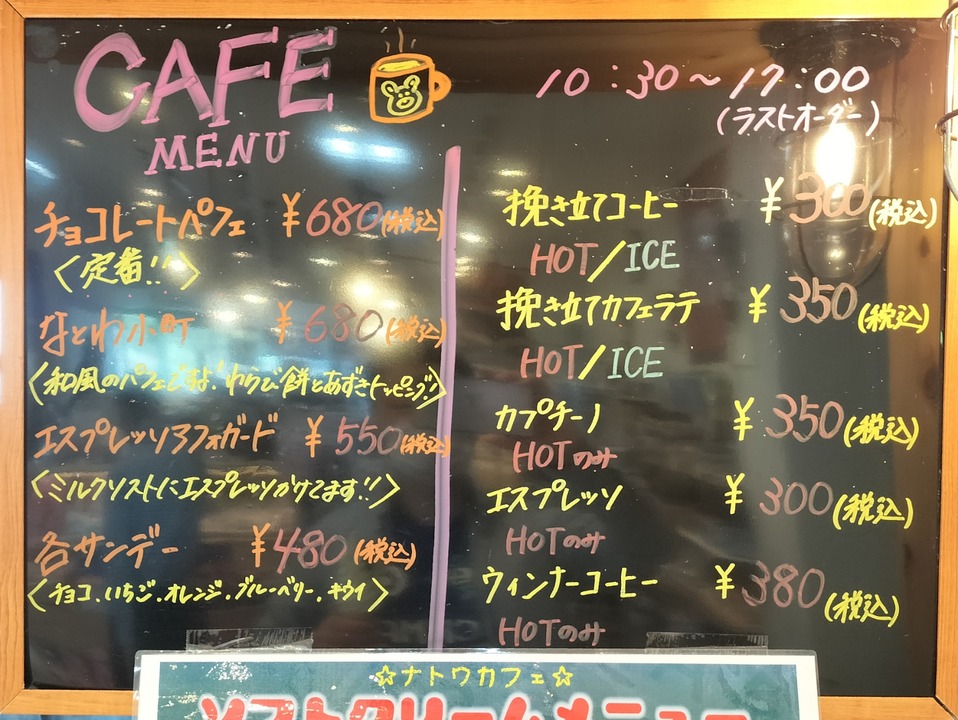 CAFE
MENU
10:30～17:00
(ラストオーダー)
チョコレートパフェ ¥680(税込)
〈定番!!〉
なとわ小町 ¥680(税込)
〈和風のパフェですよ!わらび餅とあずきトッピング!〉
エスプレッソアフォガード ¥550(税込)
〈ミルクソフトにエスプレッソかけてます!!〉
各サンデー ¥480(税込)
〈チョコ.いちご.オレンジ.ブルーベリー.キウイ〉
挽き立てコーヒー ¥300(税込)
HOT/ICE
挽き立てカフェラテ ¥350(税込)
HOT/ICE
カプチーノ ¥350(税込)
HOTのみ
エスプレッソ ¥300(税込)
HOTのみ
ウィンナーコーヒー ¥380(税込)
HOTのみ
☆ナトワカフェ☆
ソフトクリームメニュー